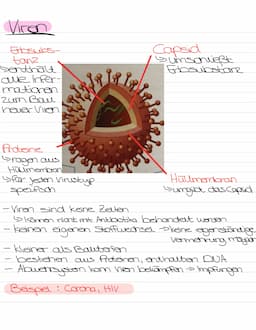 Viren
Erbsubs-
tanz
↳enthält
alle Infor-
mationen
zum Bau
neuer Viren
Capsid
↳umschließt
Erbsubstanz
Proteine
↳ragen aus
Hüllmembran
↳für jeden Virustyp
spezifisch
Hüllmembran
↳umgibt das Capsid
- Viren sind keine Zellen
↳können nicht mit Antibiotika behandelt werden
- keinen eigenen Stoffwechsel →keine eigenständige
Vermehrung möglich
- kleiner als Bakterien
- bestehen aus Proteinen, enthalten DNA
- Abwehrsystem kann Viren bekämpfen → Impfungen
Beispiel : Corona, HIV